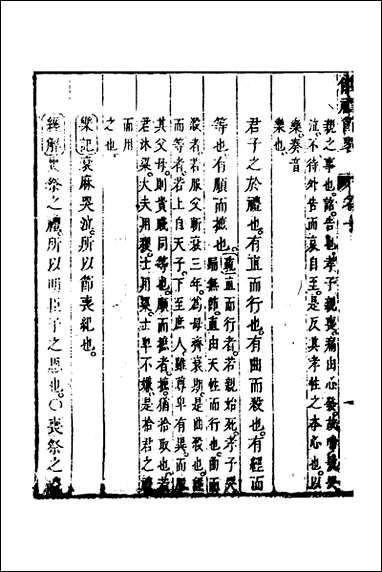 親之事也詔告也孝子親喪痛由心發故啼號哭
泣不待外告而哀自至是反其孝性之本心也以
樂奏音
樂也
君子之於禮也有直而行也有曲而殺也有經而
等也有順而摭也
直而行者若親始死孝子哭
踊無節直由天性而行也曲而
殺者若服父斬衰三年為母齊衰期是曲殺也經
而等者若上自天子下至庶人雖尊卑有異而服
其父母則貴賤同等也順而摭者摭猶拾取也若
君沐粱大夫用稷士用粱士卑不嫌是拾君之禮
而用
之也
樂記衰麻哭泣所以節喪紀也
經解喪祭之禮所以明臣子之恩也○喪祭之禮